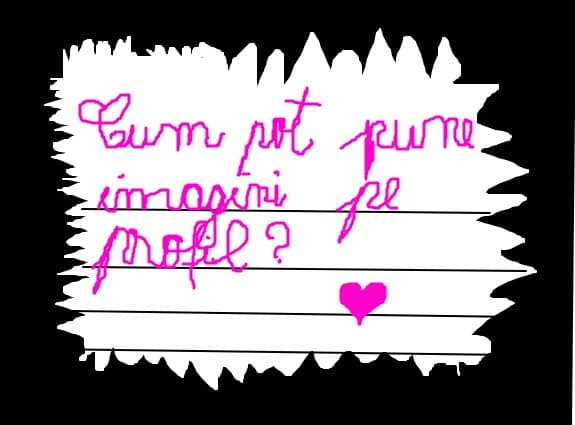 Cum pot pune
imagini pe
profil?